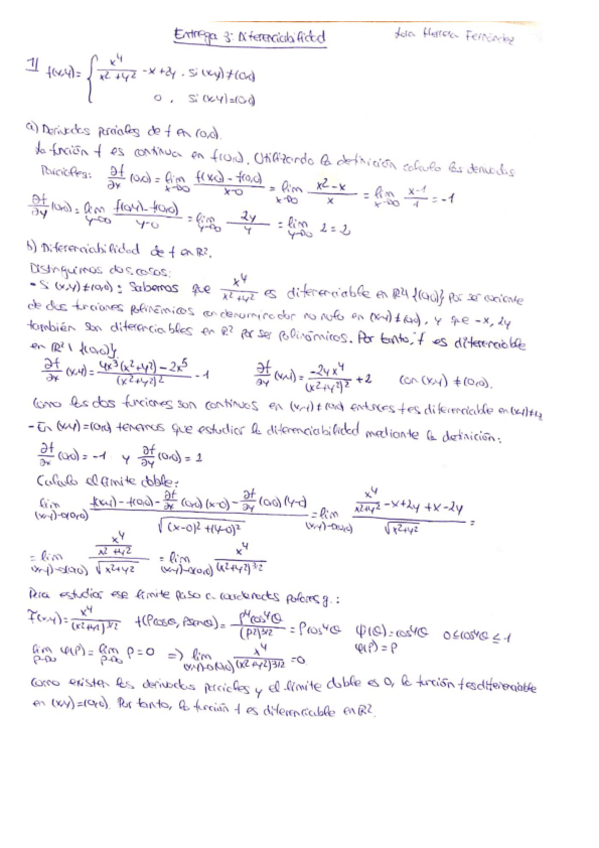 Entrega 3: Diferenciabilidad
Herrera Fernández
1) f(x,y) = { x^4/(x^2+y^2) - x + 2y , si (x,y) ≠ (0,0)
0 , si (x,y) = (0,0)
a) Derivadas parciales de f en (0,0).
La función f es continua en f(0,0). Utilizando la definición calculo las derivadas
parciales: ∂f/∂x (0,0) = lim x→0 (f(x,0) - f(0,0))/(x-0) = lim x→0 (x^2 - x)/x = lim x→0 (x-1)/1 = -1
∂f/∂y (0,0) = lim y→0 (f(0,y) - f(0,0))/(y-0) = lim y→0 2y/y = lim y→0 2 = 2
b) Diferenciabilidad de f en R^2.
Distinguimos dos casos:
- Si (x,y) ≠ (0,0): Sabemos que x^4/(x^2+y^2) es diferenciable en R^2 \ {(0,0)} por ser cociente
de dos funciones polinómicas con denominador no nulo en (x,y) ≠ (0,0), y que -x, 2y
también son diferenciables en R^2 por ser polinómicas. Por tanto, f es diferenciable
en R^2 \ {(0,0)}
∂f/∂x (x,y) = (4x^3(x^2+y^2) - 2x^5)/(x^2+y^2)^2 - 1 ∂f/∂y (x,y) = -2yx^4/(x^2+y^2)^2 + 2 con (x,y) ≠ (0,0).
Como las dos funciones son continuas en (x,y) ≠ (0,0) entonces f es diferenciable en (x,y) ≠
- En (x,y) = (0,0) tenemos que estudiar la diferenciabilidad mediante la definición:
∂f/∂x (0,0) = -1 y ∂f/∂y (0,0) = 2
Calculo el límite doble:
lim (x,y)→(0,0) (f(x,y) - f(0,0) - ∂f/∂x (0,0)(x-0) - ∂f/∂y (0,0)(y-0))/√((x-0)^2+(y-0)^2) = lim (x,y)→(0,0) (x^4/(x^2+y^2) - x + 2y + x - 2y)/√(x^2+y^2) =
= lim (x,y)→(0,0) (x^4/(x^2+y^2))/√(x^2+y^2) = lim (x,y)→(0,0) x^4/(x^2+y^2)^{3/2}
Para estudiar ese límite paso a coordenadas polares:
F(x,y) = x^4/(x^2+y^2)^{3/2} f(ρcosθ, ρsenθ) = ρ^4cos^4θ/(ρ^2)^{3/2} = ρcos^4θ φ(θ) = cos^4θ 0 ≤ cos^4θ ≤ 1
φ(ρ) = ρ
lim ρ→0 φ(ρ) = lim ρ→0 ρ = 0 => lim (x,y)→(0,0) x^4/(x^2+y^2)^{3/2} = 0
Como existen las derivadas parciales y el límite doble es 0, la función f es diferenciable
en (x,y) = (0,0). Por tanto, la función f es diferenciable en R^2.